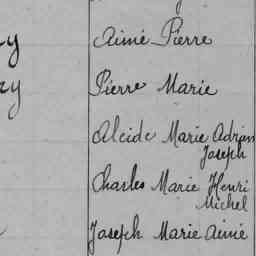 Aimé Pierre
Pierre Marie
Alcide Marie Adrien
Joseph
Charles Marie Henri
Michel
Joseph Marie Aimé